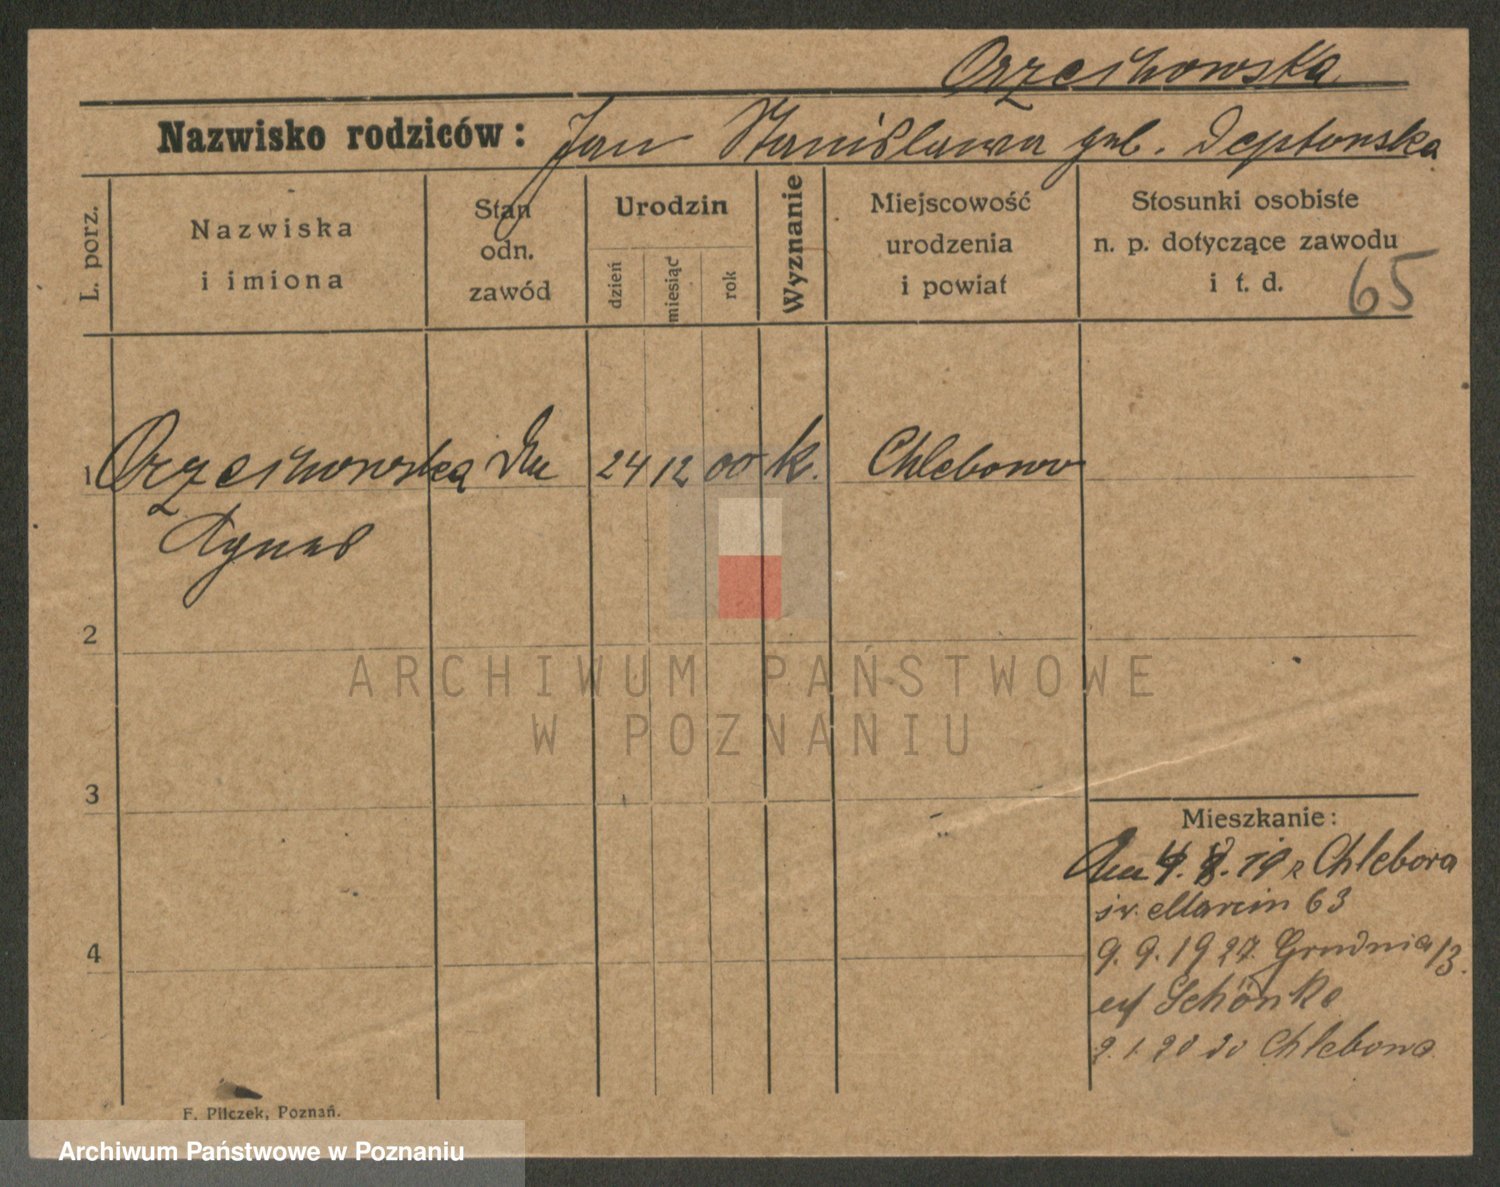 Orzechowska
Nazwisko rodziców: Jan Stanisława geb. Deptonska
L. porz.
Nazwiska
i imiona
Stan
odn.
zawód
Urodzin
dzień
miesiąc
rok
Wyznanie
Miejscowość
urodzenia
i powiat
Stosunki osobiste
n. p. dotyczące zawodu
i t. d.
65
1 Orzechowska 24 12 00 k. Chlebowo
Agnes
2
ARCHIWUM PAŃSTWOWE
W POZNANIU
3
Mieszkanie:
19 Chlebowa
św. Marcin 63
4
9. 9. 19 Grudnia 13.
Schönke
2. 1. 20 do Chlebowa
F. Pilczek, Poznań.
Archiwum Państwowe w Poznaniu